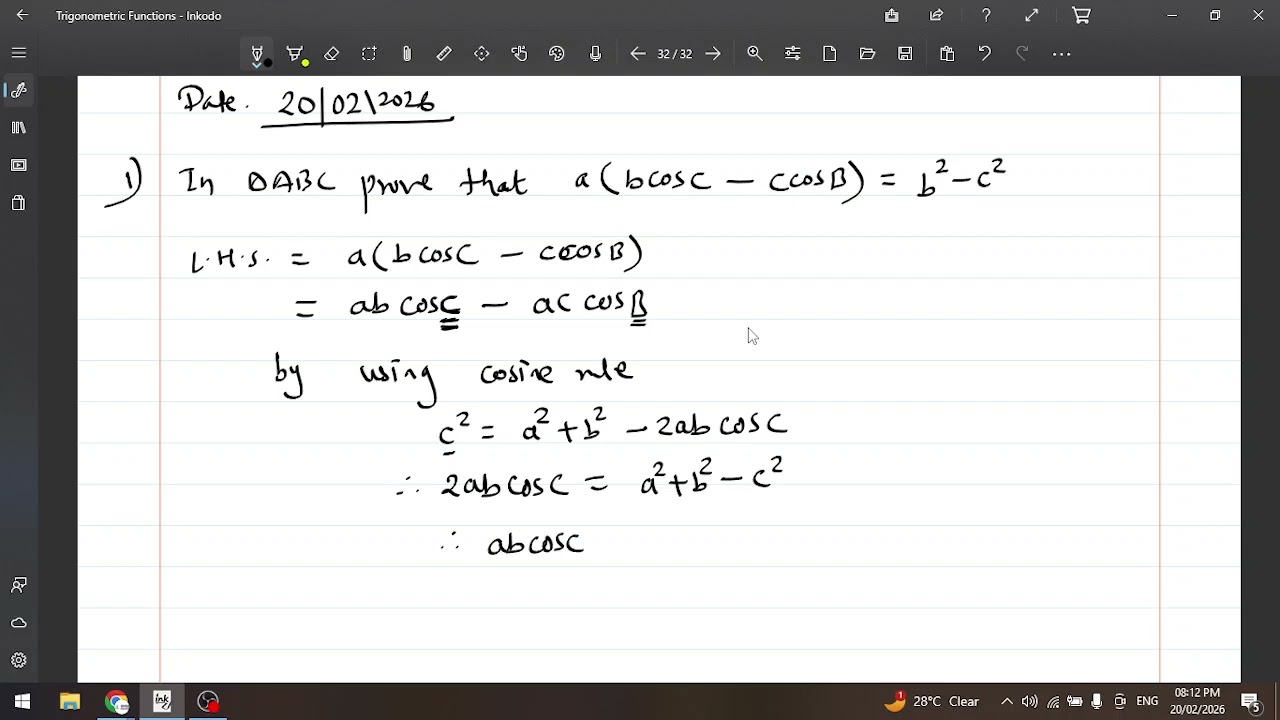 Trigonometric Functions - Inkodo
32/32
Date. 20/02/2026
1) In ΔABC prove that a(bcosC – ccosB) = b² – c²
L.H.S. = a(bcosC – ccosB)
= ab cosC – ac cosB
by using cosine rule
c² = a² + b² – 2ab cosC
∴ 2abcosC = a² + b² – c²
∴ abcosC
ink
1
28°C Clear
ENG
08:12 PM
20/02/2026
5